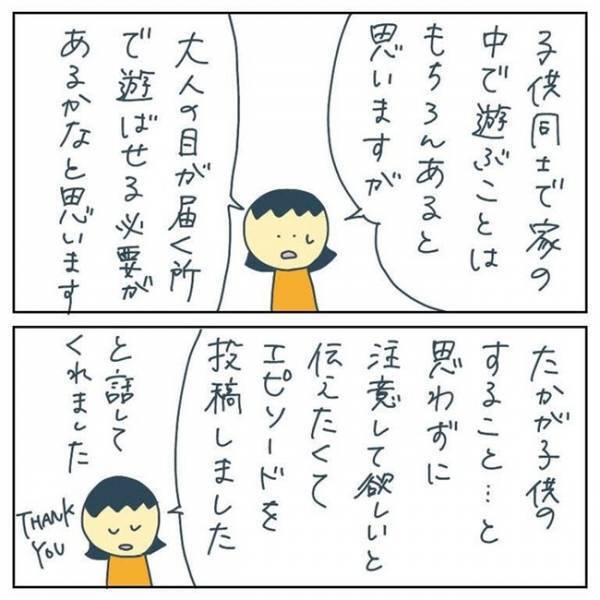 子供同士で家の
中で遊ぶことは
もちろんあると
思いますが
大人の目が届く所
で遊ばせる必要が
あるかなと思います
たかが子供の
すること…と
思わずに
注意して欲しいと
伝えたくて
エピソードを
投稿しました
と話して
くれました
THANK
YOU